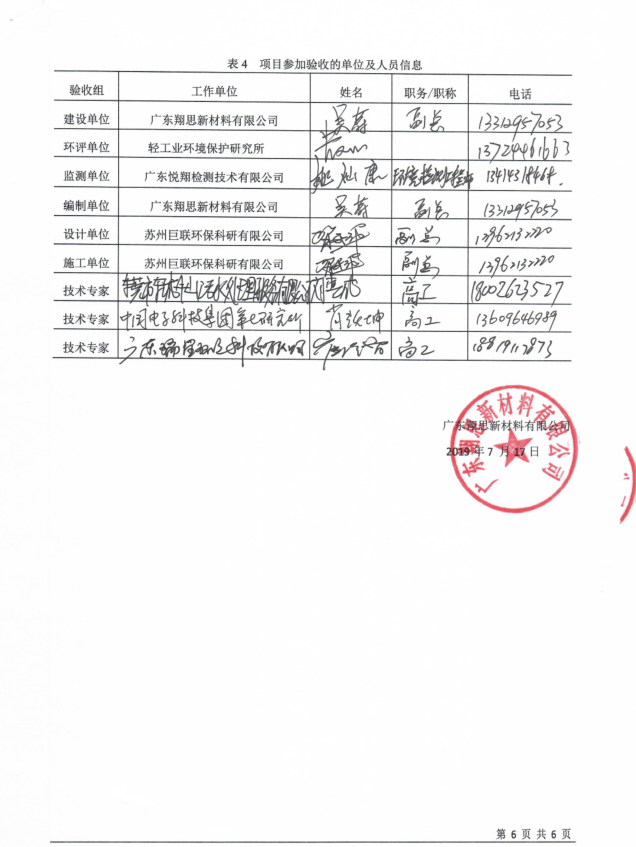 表 4 项目参加验收的单位及人员信息
验收组 工作单位 姓名 职务/职称 电话
建设单位 广东翔思新材料有限公司 副总 13312957053
环评单位 轻工业环境保护研究所 13724461663
监测单位 广东悦翔检测技术有限公司 13414318464
编制单位 广东翔思新材料有限公司 副总 13312957053
设计单位 苏州巨联环保科研有限公司 副总 13962132220
施工单位 苏州巨联环保科研有限公司 副总 13962132220
技术专家 高工 18002623527
技术专家 中国电子科技集团第七研究所 高工 13609646989
技术专家 高工 18819112873
广东翔思新材料有限公司
2019 年 7 月 17 日
广东翔思新材料有限公司
第 6 页 共 6 页